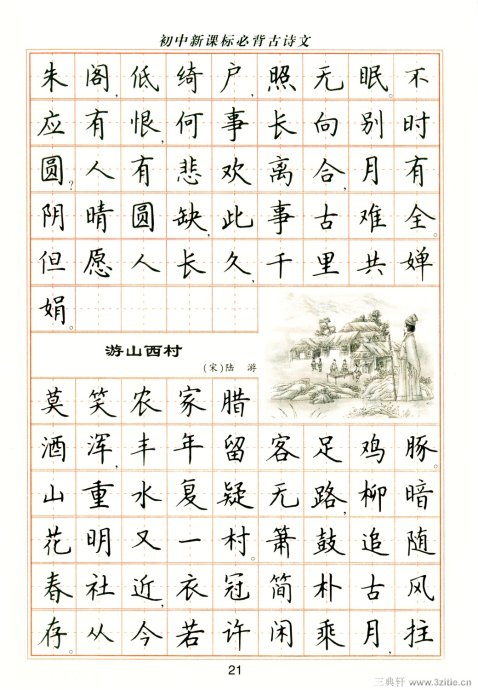 初中新课标必背古诗文
朱阁,低绮户,照无眠。不
应有恨,何事长向别时
圆?人有悲欢离合,月有
阴晴圆缺,此事古难全。
但愿人长久,千里共婵
娟。
游山西村
(宋)陆 游
莫笑农家腊
酒浑,丰年留客足鸡豚。
山重水复疑无路,柳暗
花明又一村。箫鼓追随
春社近,衣冠简朴古风
存。从今若许闲乘月,拄
21
三典轩 www.3zitie.cn